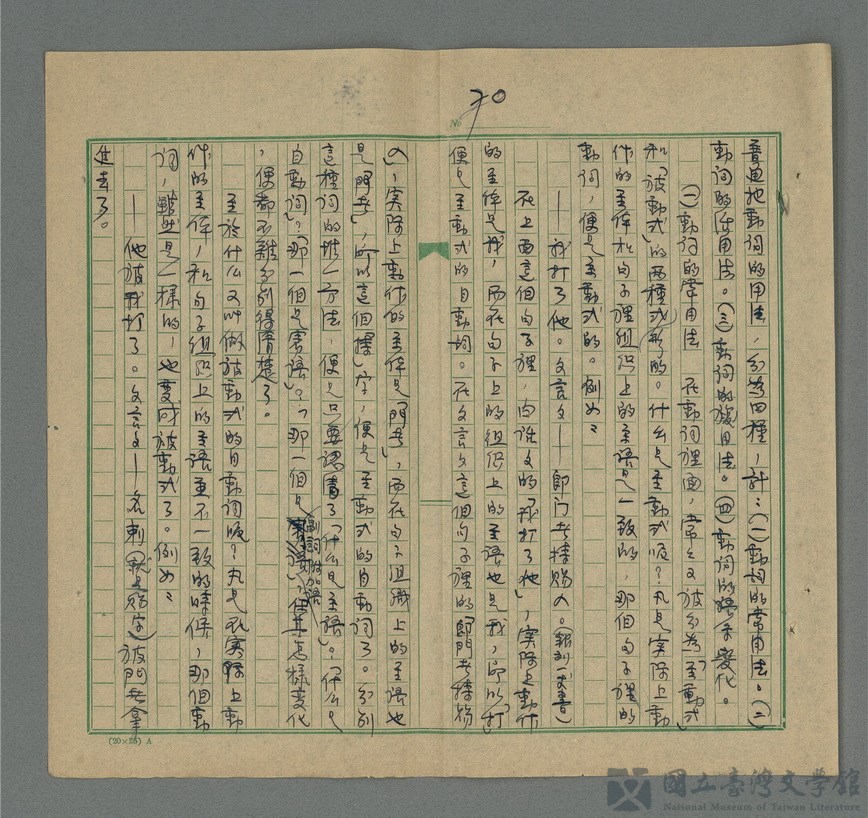 70
No
普通地動詞的用法,分為四種,計:(一)動詞的常用法。(二)
動詞的活用法。(三)動詞的被用法。(四)動詞的語章變化。
(一)動詞的常用法 在動詞裡面,常々又被分為「主動式」
和「被動式」的兩種式形的。什么是主動式呢?凡是实际上動
作的主体和句子裡組织上的主語是一致的,那個句子裡的
動詞,便是主動式的。例如:
——我打了他。文言文——郎门老搏賜入。
在上面這個句子裡,白話文的「我打了他」,实际上動作
的主体是我,而在句子上的組织上的主語也是我,所以「打」
便是主動式的自動詞。在文言文這個句子裡的郎門老搏賜
入,实际上動作的主体是「門老」,而在句子組織上的主語也
是「門老」,所以這個「搏」字,便是主動式的自動詞了。分別
這種詞的惟一方法,便是只要認清了「什么是主語」?「什么是
自動詞」?「那一個是賓語」?「那一個是副詞附加語」,任其怎樣变化
,便都不難分别得清楚了。
至於什么又叫做被動式的自動詞呢?凡是在实际上動
作的主体,和句子組织上的主語並不一致的時候,那個動
詞,雖然是一樣的,也变成被動式了。例如:
——他被我打了。文言文——名刺(就是賜字)被門老拿
進去了。
(20×25) A
國立臺灣文學館
National Museum of Taiwan Literature